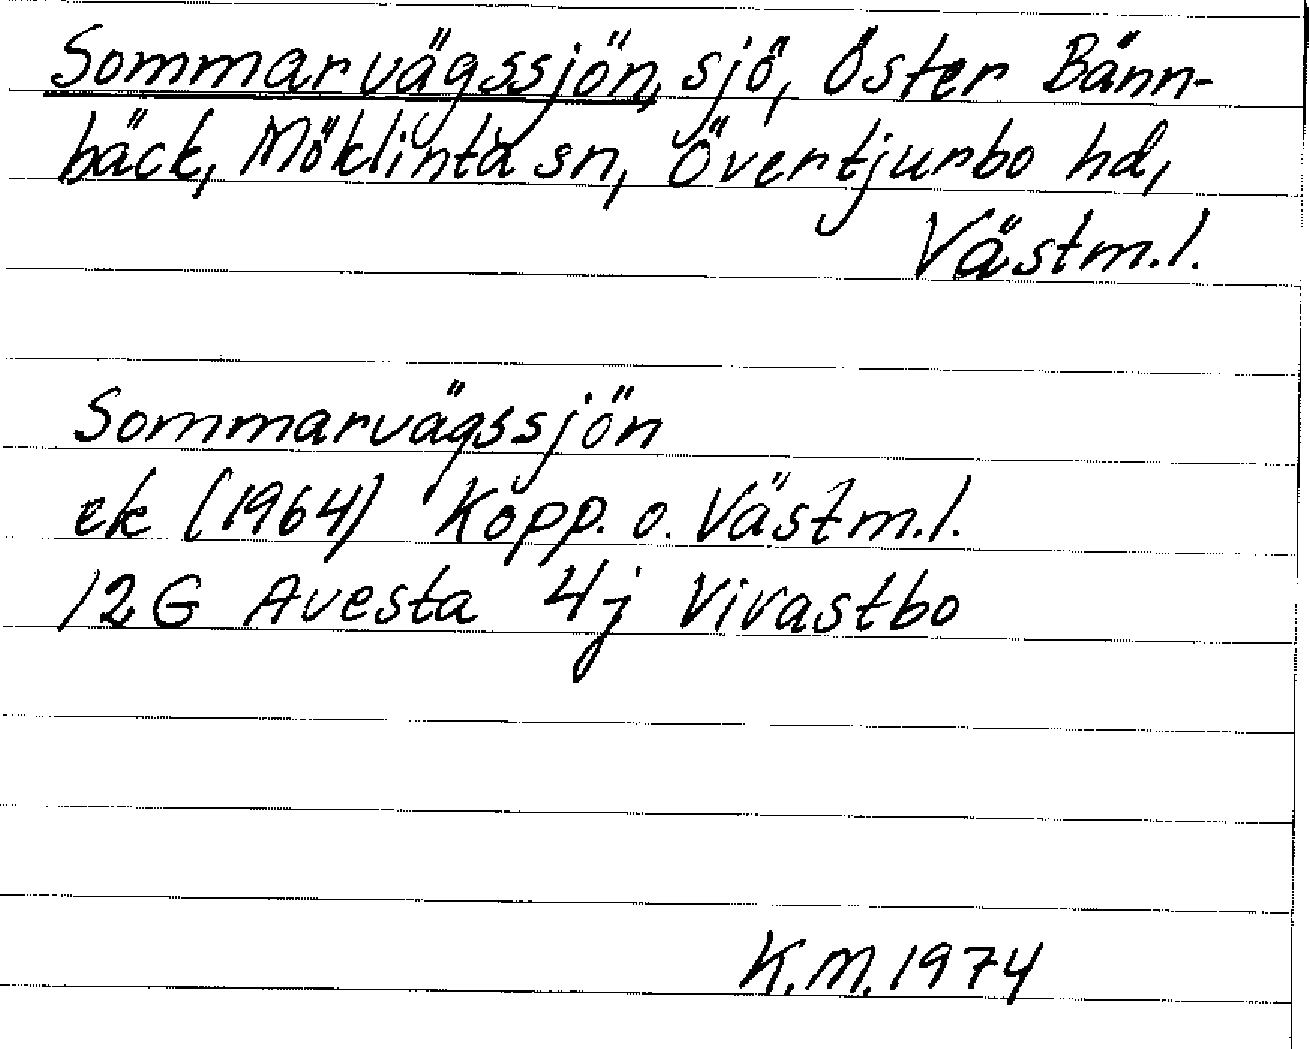 Sommarvägssjön, sjö, Öster Bänn-
bäck, Möklinta sn, Övertjurbo hd,
Västm.l.
Sommarvägssjön
ek (1964) Kopp. o. Västm.l.
12G Avesta 4j Vivastbo
K.M. 1974